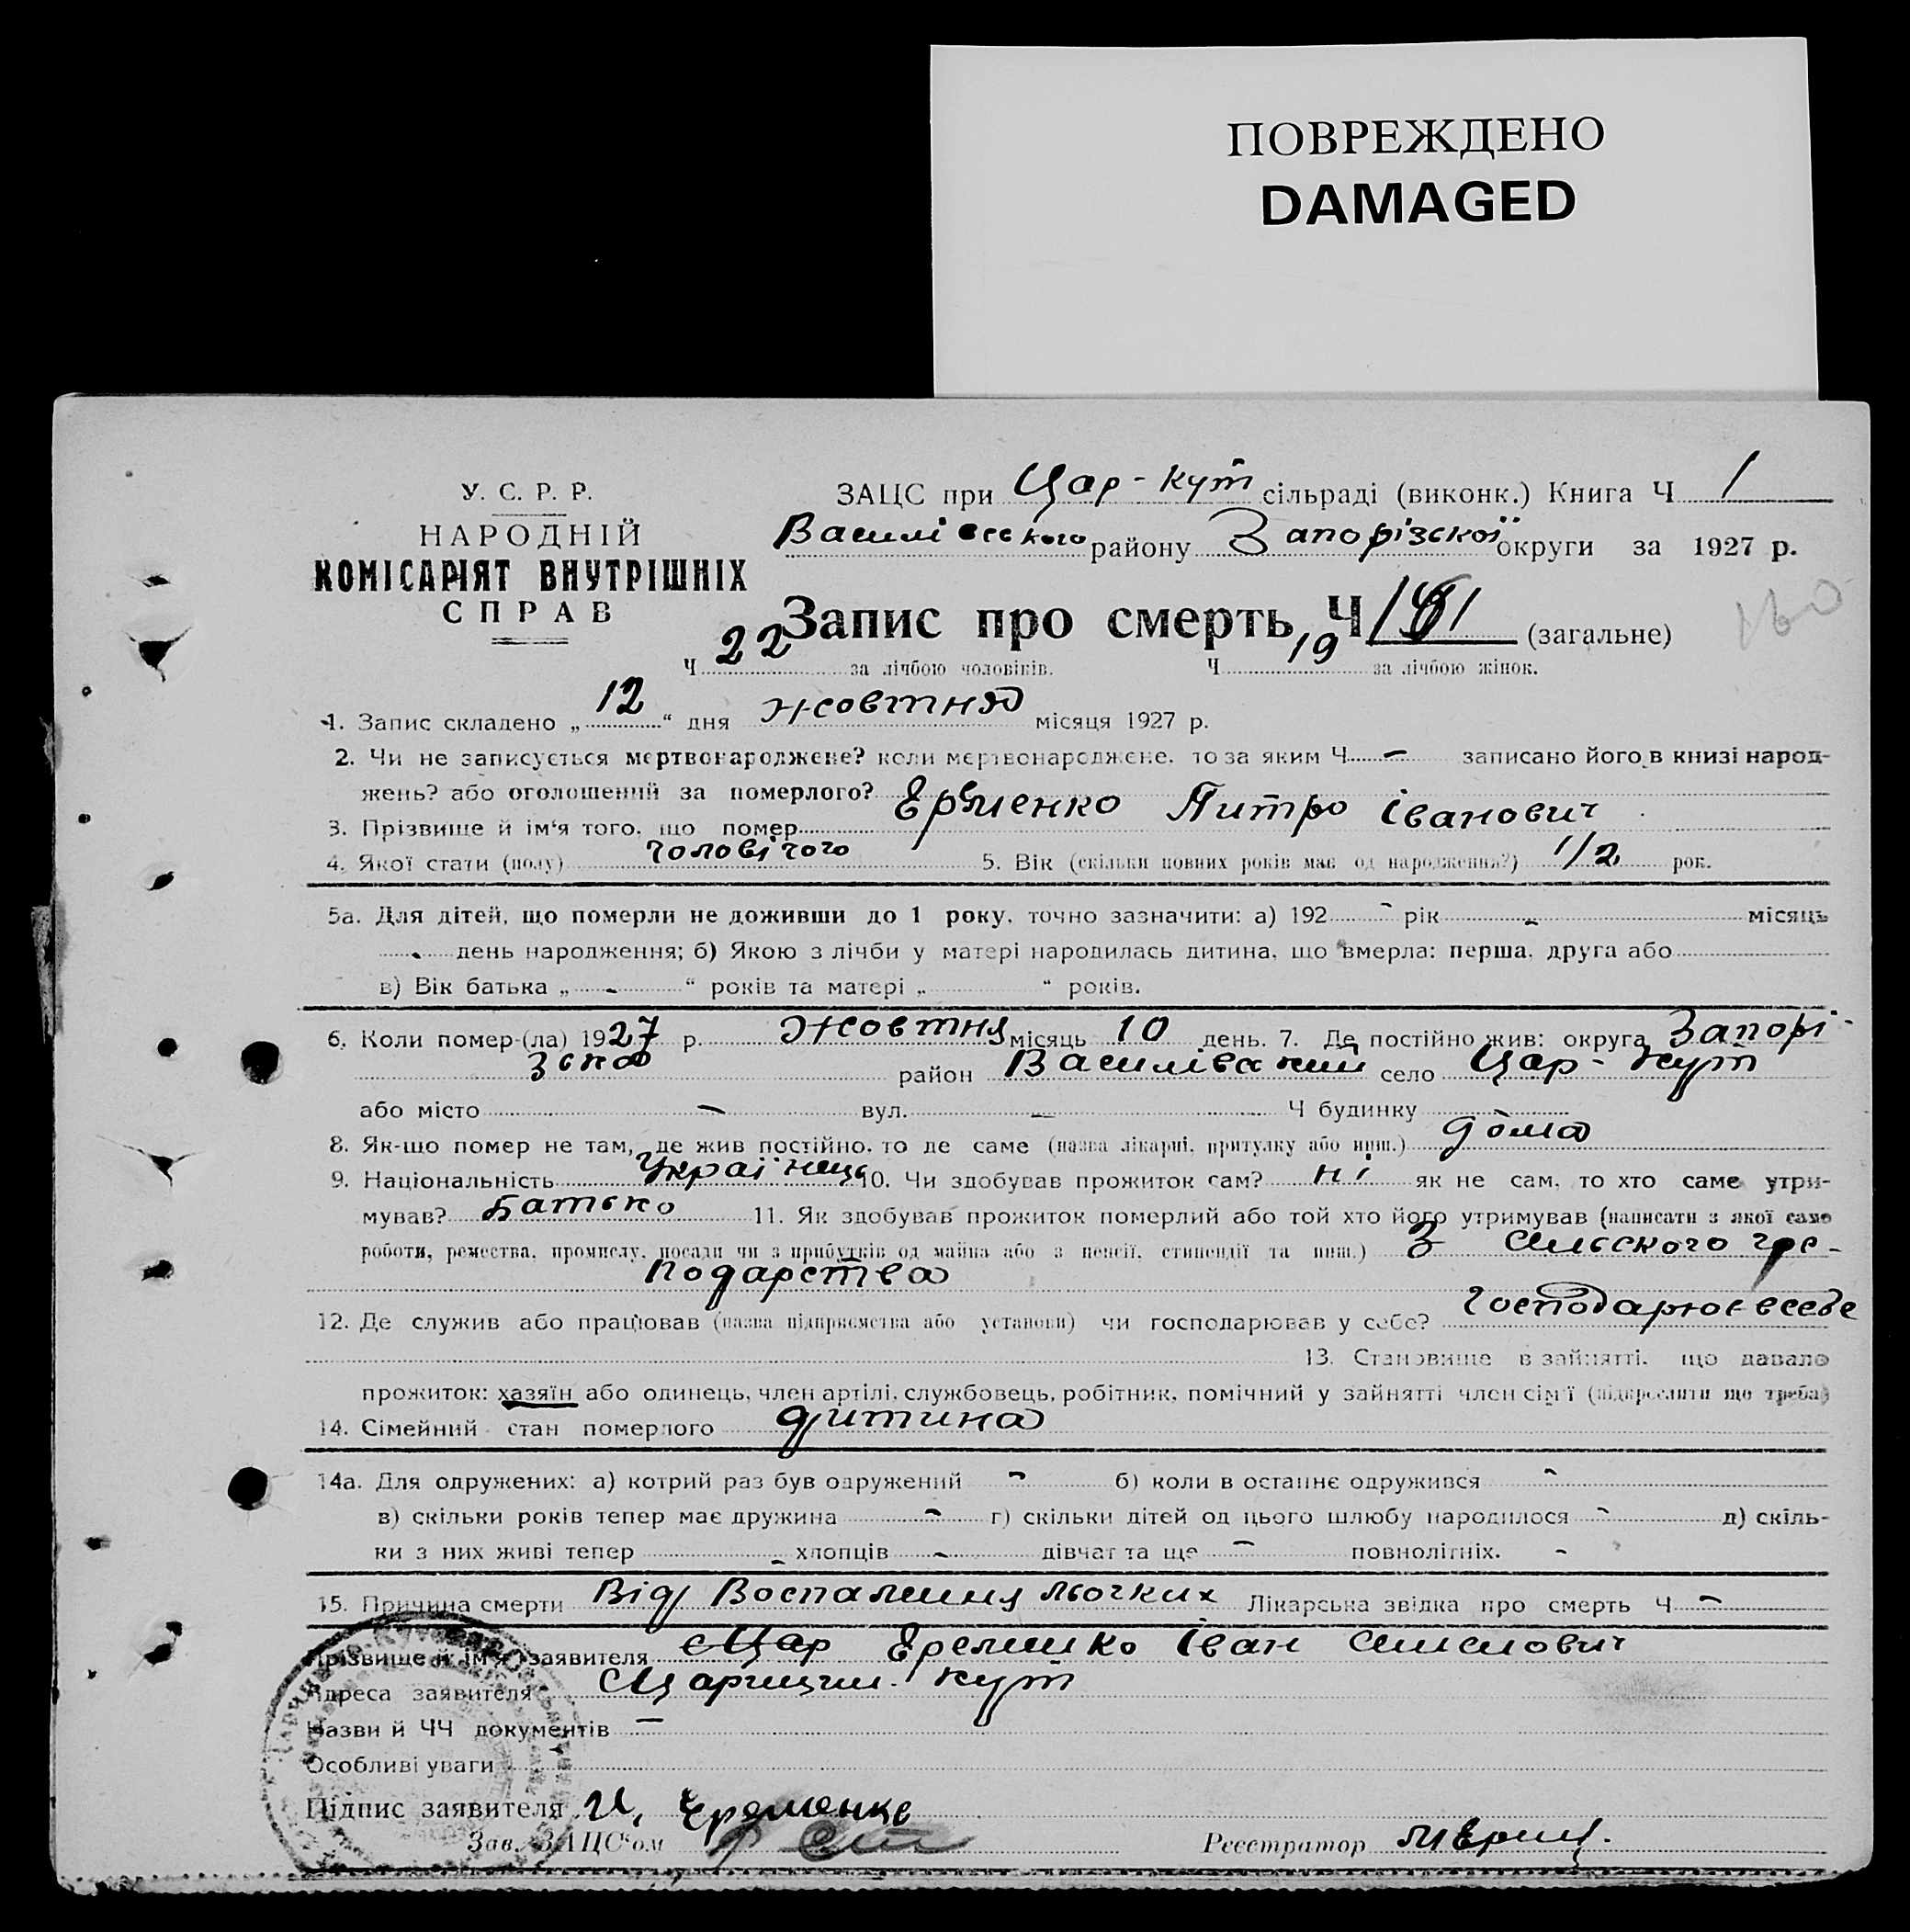 ПОВРЕЖДЕНО
DAMAGED
У. С. Р. Р.
НАРОДНІЙ
КОМІСАРІЯТ ВНУТРІШНІХ
СПРАВ
ЗАЦС при Цар-Кут сільраді (виконк.) Книга Ч 1
Василівського району Запорізької округи за 1927 р.
160
Запис про смерть Ч (загальне)
Ч 22 за лічбою чоловіків. Ч 19 за лічбою жінок.
1. Запис складено „ 12 “ дня жовтня місяця 1927 р.
2. Чи не записується мертвонароджене? коли мертвонароджене, то за яким Ч - записано його в книзі народ-
жень? або оголошений за померлого?
3. Прізвище й ім'я того, що помер Ерьменко Питро Іванович
4. Якої стати (полу) чоловічого 5. Вік (скільки повних років має од народження?) 1/2 рок.
5а. Для дітей, що померли не доживши до 1 року, точно зазначити: а) 192 - рік - місяць
- день народження; б) Якою з лічби у матері народилась дитина, що вмерла: перша, друга або
в) Вік батька „ - “ років та матері „ “ років.
6. Коли помер-(ла) 1927 р. Жовтня місяць 10 день. 7. Де постійно жив: округа Запорі-
зька район Василівський село Цар-Кут
або місто - вул. - Ч будинку
8. Як-що помер не там, де жив постійно, то де саме (назва лікарні, притулку або инш.) дома
9. Національність Українець 10. Чи здобував прожиток сам? ні як не сам, то хто саме утри-
мував? Батько 11. Як здобував прожиток померлий або той хто його утримував (написати з якої саме
роботи, ремества, промислу, посади чи з прибутків од майна або з пенсії, стипендії та инш.) З сильского гос-
подарства
12. Де служив або працював (назва підприємства або установи) чи господарював у себе? господарює в себе
13. Становище в зайнятті, що давало
прожиток: хазяїн або одинець, член артілі, службовець, робітник, помічний у зайнятті член сім'ї (підкреслити що треба)
14. Сімейний стан померлого дитина
14а. Для одружених: а) котрий раз був одружений - б) коли в останнє одружився -
в) скільки років тепер має дружина - г) скільки дітей од цього шлюбу народилося - д) скіль-
ки з них живі тепер - хлопців - дівчат та ще - повнолітніх. -
15. Причина смерти Від Воспаления льочких Лікарська звідка про смерть Ч -
Прізвище й ім'я заявителя Цар Еременко Іван
Адреса заявителя Царицин. Кут
Назви й ЧЧ документів -
Особливі уваги
Підпис заявителя И, Еременко
Зав. ЗАЦС'ом
Реєстратор